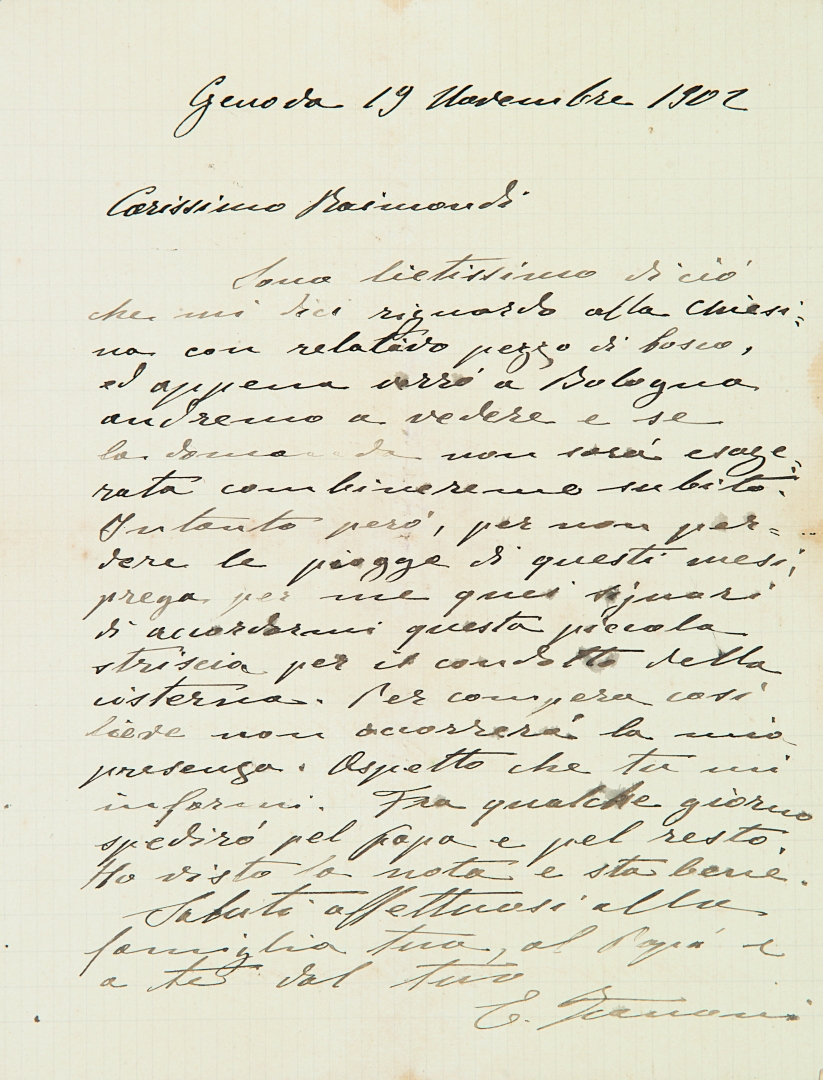 Genova 19 Novembre 1902
Carissimo Raimondi
Sono lietissimo di ciò
che mi dici riguardo alla Chiesi=
na con relativo pezzo di bosco,
ed appena verrò a Bologna
andremo a vedere e se
la domanda non sarà esage=
rata combineremo subito.
Intanto però, per non per=
dere le piogge di questi mesi,
prega per me quei signori
di accordarmi questa piccola
striscia per il condotto della
cisterna. Per compera così
lieve non occorrerà la mia
presenza. Aspetto che tu mi
informi. Fra qualche giorno
spedirò pel Papa e pel resto.
Ho visto la nota e sta bene.
Saluti affettuosi alla
famiglia tua, al Papà e
a te dal tuo
E.